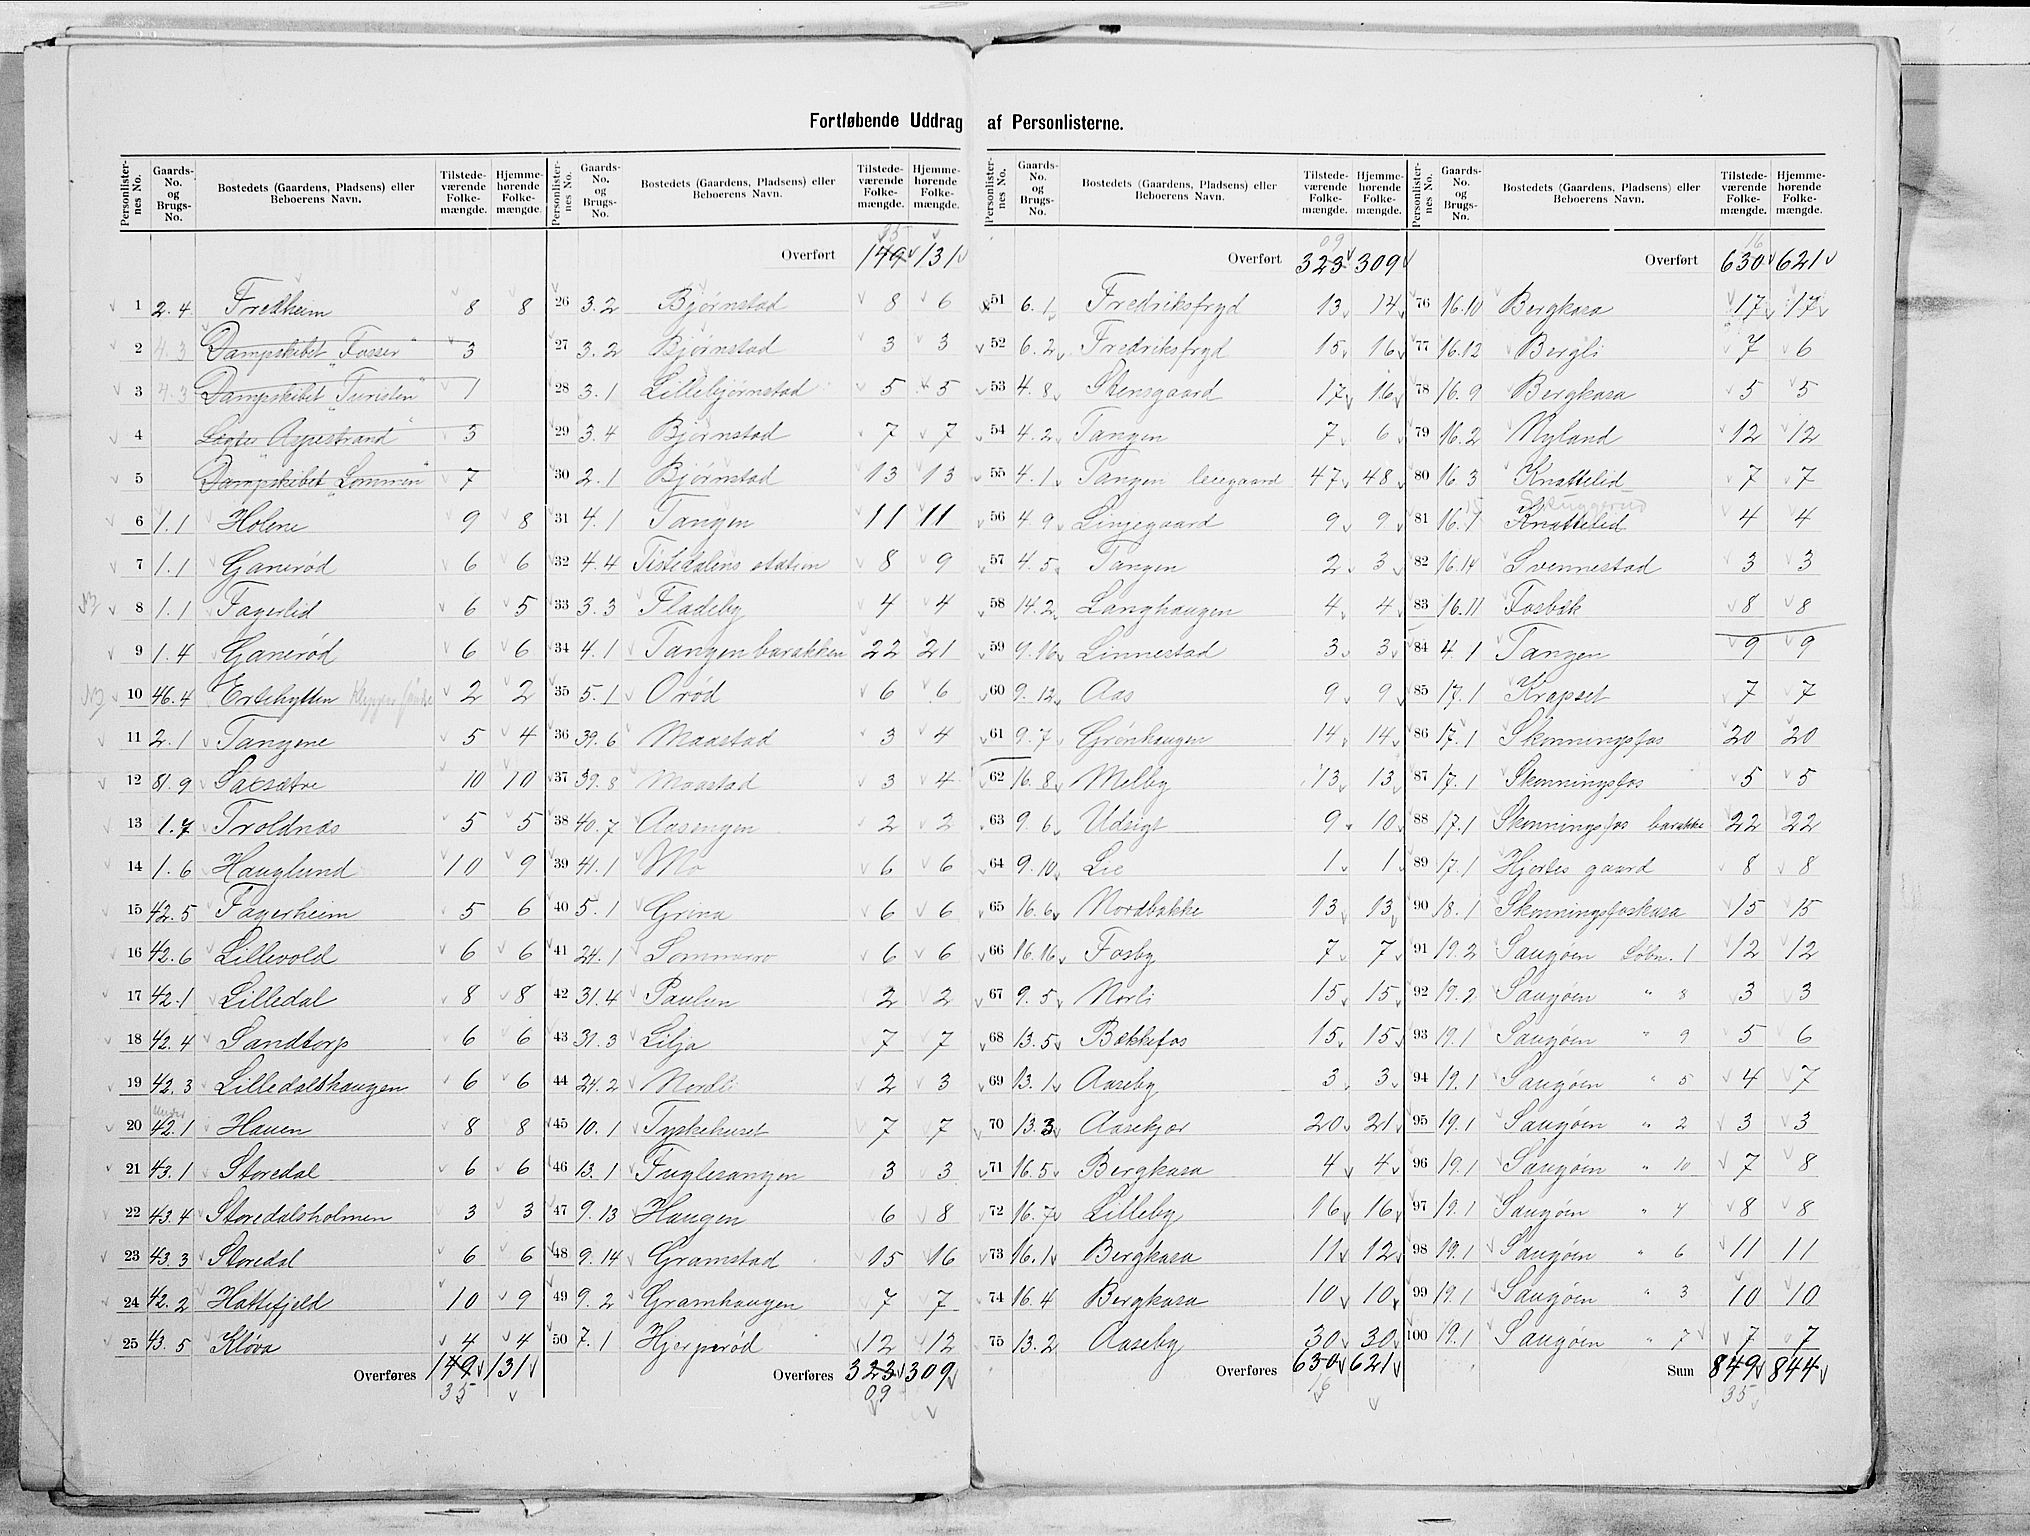 Fortløbende Uddrag af Personlisterne.
Personlisternes No. Gaards-No. og Brugs-No. Bostedets (Gaardens, Pladsens) eller Beboerens Navn. Tilstedeværende Folkemængde. Hjemmehørende Folkemængde.
1 2.4 Fredheim 8 8
2 4.3 Dampskibet "Fosser" 3
3 4.3 Dampskibet "Turisten" 1
4 Aspestrand" 5
5 Dampskibet "Lommen" 7
6 1.1 Holene 9 8
7 1.1 Ganerød 6 6
8 1.1 Fagerlid 6 5
9 1.4 Ganerød 6 6
10 46.4 Ertehytten 2 2
11 2.1 Tangene 5 4
12 81.9 Saxsætre 10 10
13 1.7 Troldnæs 5 5
14 1.6 Hauglund 10 9
15 42.5 Fagerheim 5 6
16 42.6 Lillevold 6 6
17 42.1 Lilledal 8 8
18 42.4 Sandtorp 6 6
19 42.3 Lilledalshaugen 6 6
20 under 42.1 Hauen 8 8
21 43.1 Storedal 6 6
22 43.4 Storedalsholmen 3 3
23 43.3 Storedal 6 6
24 42.2 Hattefjeld 10 9
25 43.5 Kløva 4 4
Overføres 149 131
35
Personlisternes No. Gaards-No. og Brugs-No. Bostedets (Gaardens, Pladsens) eller Beboerens Navn. Tilstedeværende Folkemængde. Hjemmehørende Folkemængde.
35
Overført 149 131
26 3.2 Bjørnstad 8 6
27 3.2 Bjørnstad 3 3
28 3.1 Lillebjørnstad 5 5
29 3.4 Bjørnstad 7 7
30 2.1 Bjørnstad 13 13
31 4.1 Tangen 11 11
32 4.4 Tistedalens station 8 9
33 3.3 Fladeby 4 4
34 4.1 Tangen barakken 22 21
35 5.1 Orød 6 6
36 39.6 Maastad 3 4
37 39.8 Maastad 3 4
38 40.7 Aasengen 2 2
39 41.1 Mo 6 6
40 5.1 Grina 6 6
41 24.1 Sommerro 6 6
42 31.4 Paulun 2 2
43 31.3 Lilja 7 7
44 24.2 Nordli 2 3
45 10.1 Tyskehuset 7 7
46 13.1 Fuglesangen 3 3
47 9.13 Haugen 6 8
48 9.14 Gramstad 15 16
49 9.2 Gramhaugen 7 7
50 7.1 Hjerperød 12 12
Overføres 323 309
09
Personlisternes No. Gaards-No. og Brugs-No. Bostedets (Gaardens, Pladsens) eller Beboerens Navn. Tilstedeværende Folkemængde. Hjemmehørende Folkemængde.
09
Overført 323 309
51 6.1 Fredriksfryd 13 14
52 6.2 Fredriksfryd 15 16
53 4.8 Stensgaard 17 16
54 4.2 Tangen 7 6
55 4.1 Tangen leiegaard 47 48
56 4.9 Linjegaard 9 9
57 4.5 Tangen 2 3
58 14.2 Langhaugen 4 4
59 9.16 Linnestad 3 3
60 9.12 Aas 9 9
61 9.7 Grønhaugen 14 14
62 16.8 Melby 13 13
63 9.6 Udsigt 9 10
64 9.10 Lie 1 1
65 16.6 Nordbakke 13 13
66 16.16 Fosby 7 7
67 9.5 Norli 15 15
68 13.5 Bækkefos 15 15
69 13.1 Aaseby 3 3
70 13.3 Aasekjær 20 21
71 16.5 Bergkasa 4 4
72 16.7 Lilleby 16 16
73 16.1 Bergkasa 11 12
74 16.4 Bergkasa 10 10
75 13.2 Aaseby 30 30
Overføres 630 621
16
Personlisternes No. Gaards-No. og Brugs-No. Bostedets (Gaardens, Pladsens) eller Beboerens Navn. Tilstedeværende Folkemængde. Hjemmehørende Folkemængde.
16
Overført 630 621
76 16.10 Bergkasa 17 17
77 16.12 Bergli 7 6
78 16.9 Bergkasa 5 5
79 16.2 Nyland 12 12
80 16.3 Knattelid 7 7
81 16.1 Knattelid 4 4
82 16.14 Svennestad 3 3
83 16.11 Fosbæk 8 8
84 4.1 Tangen 9 9
85 17.1 Krapset 7 7
86 17.1 Skonningsfos 20 20
87 17.1 Skonningsfos 5 5
88 17.1 Skonningsfos barakke 22 22
89 17.1 Hjortes gaard 8 8
90 18.1 Skonningsfoskasa 15 15
91 19.2 Saugøen Løbn. 1 12 12
92 19.2 Saugøen " 8 3 3
93 19.1 Saugøen " 9 5 6
94 19.1 Saugøen " 5 4 7
95 19.1 Saugøen " 2 3 3
96 19.1 Saugøen " 10 7 8
97 19.1 Saugøen " 4 8 8
98 19.1 Saugøen " 6 11 11
99 19.1 Saugøen " 3 10 10
100 19.1 Saugøen " 7 7 7
Sum 849 844
35